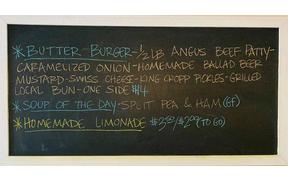 *BUTTER BURGER-1/2 LB ANGUS BEEF PATTY-
CARAMELIZED ONION-HOMEMADE BALLAD BEER
MUSTARD-SWISS CHEESE-KING CROPP PICKLES-GRILLED
LOCAL BUN-ONE SIDE $14
*SOUP OF THE DAY-SPLIT PEA & HAM (GF)
*HOMEMADE LIMONADE (TO GO)